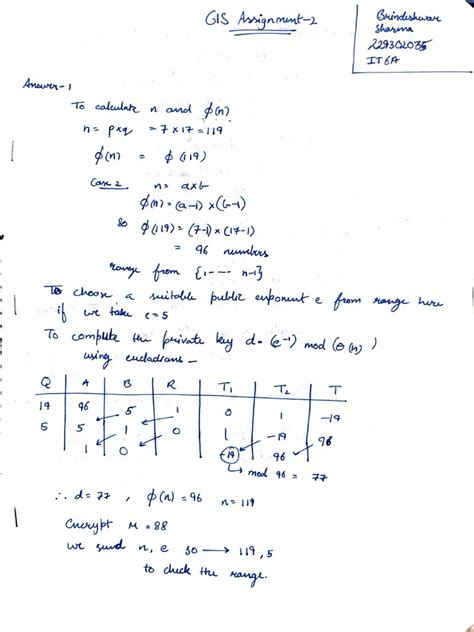 GIS Assignment-2
Brindeshwar
Sharma
229302035
IT 6A
Answer-1
To calculate n and ϕ(n)
n = p×q = 7×17 = 119
ϕ(n) = ϕ(119)
Case 2 n = a×b
ϕ(n) = (a-1) × (b-1)
so ϕ(119) = (7-1) × (17-1)
= 96 numbers
range from {1 --- n-1}
To choose a suitable public exponent e from range here
if we take e=5
To complete the private key d = (e⁻¹) mod (ϕ(n))
using eucladians –
Q | A | B | R | T₁ | T₂ | T
19 | 96 | 5 | 1 | 0 | 1 | -19
5 | 5 | 1 | 0 | 1 | -19 | 96
1 | 0 | -19 | 96
↳ mod 96 = 77
∴ d = 77 , ϕ(n) = 96 n = 119
Encrypt M = 88
we send n, e so → 119, 5
to check the range.